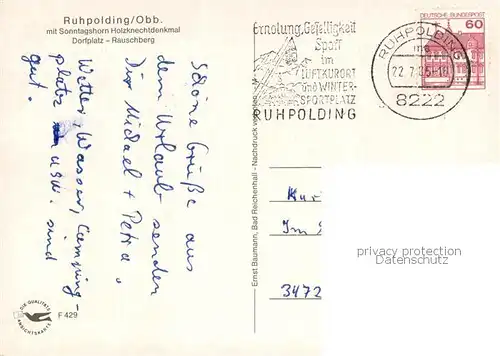 Ruhpolding/Obb.
mit Sonntagshorn Holzknechtdenkmal
Dorfplatz – Rauschberg
Schöne Grüße aus
dem Urlaub senden
Dir Michael + Petra,
Wetter, Wasser, Camping-
platz usw. sind
gut.
DIE QUALITÄTS
ANSICHTSKARTE
F 429
Ernst Baumann, Bad Reichenhall - Nachdruck verboten
Erholung, Geselligkeit
Sport
im
LUFTKURORT
und WINTER-
SPORTPLATZ
RUHPOLDING
RUHPOLDING
22.7.85-18
8222
DEUTSCHE BUNDESPOST
60
Im
3472
privacy protection
Datenschutz